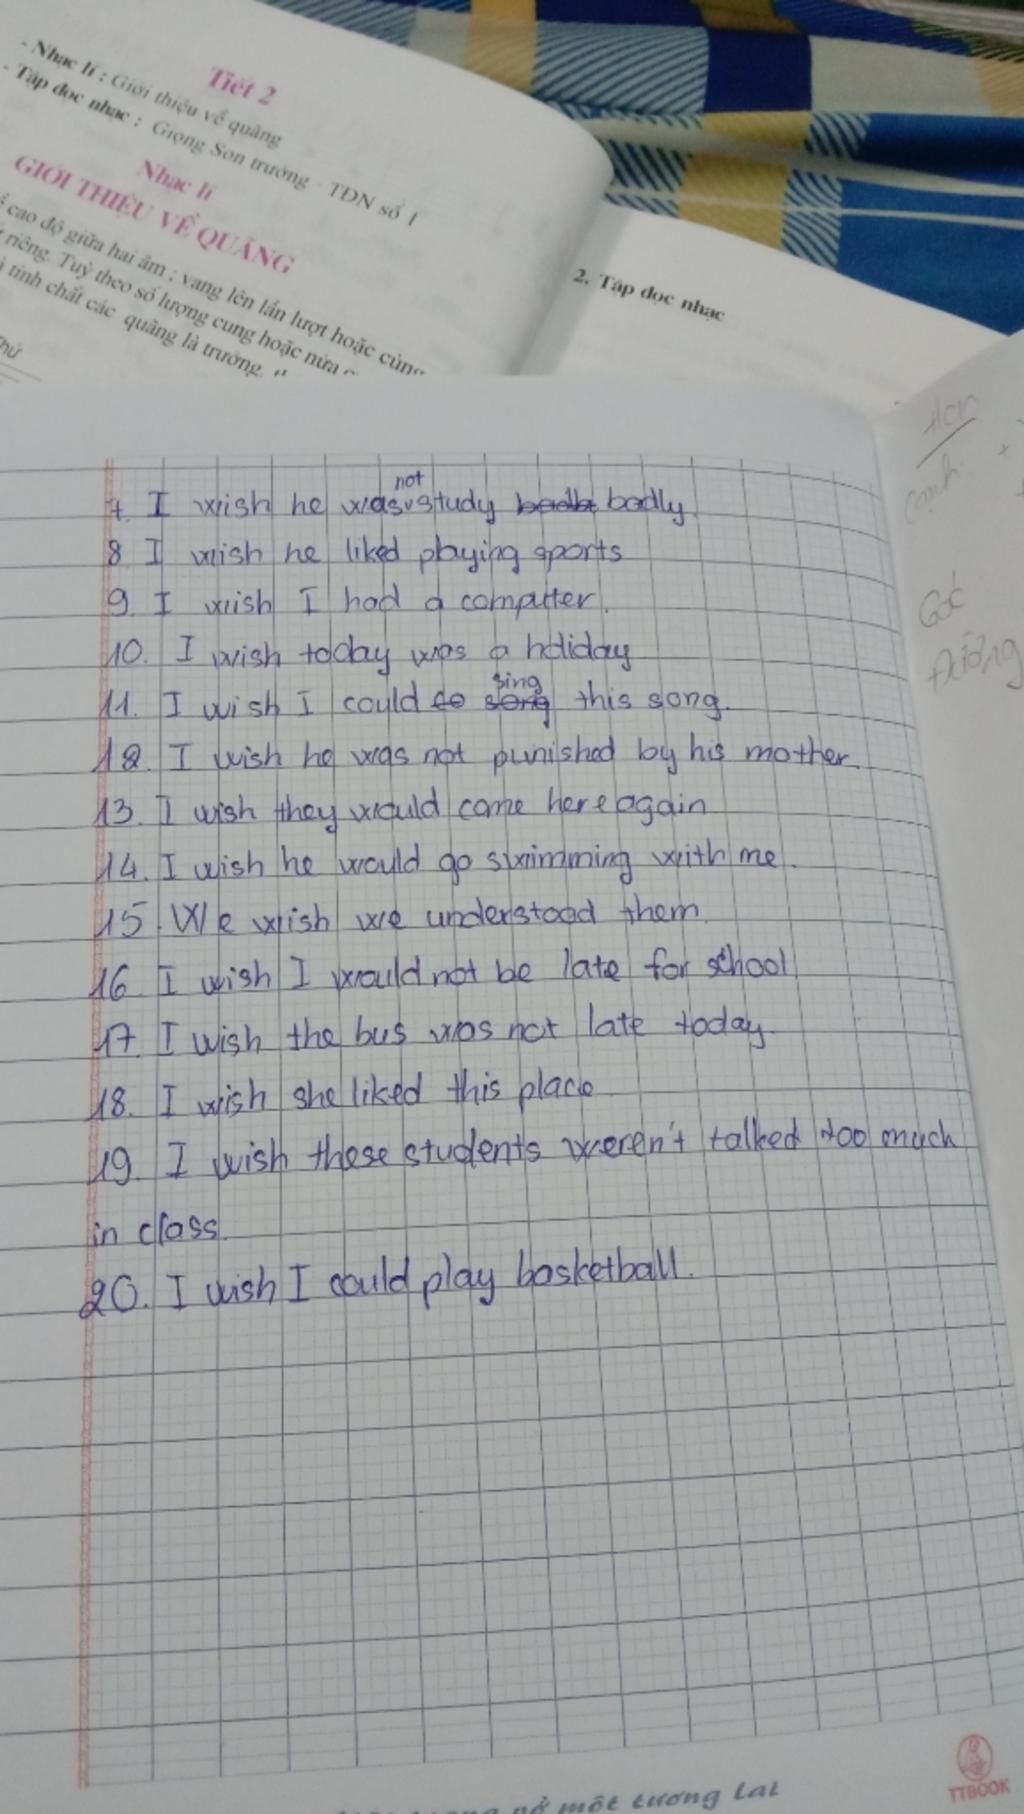 Tiết 2
- Nhạc lí : Giới thiệu về quãng
- Tập đọc nhạc : Giọng Son trưởng - TDN số 1
Nhạc lí
GIỚI THIỆU VỀ QUÃNG
cao độ giữa hai âm ; vang lên lần lượt hoặc cùng
riêng. Tuỳ theo số lượng cung hoặc nửa
tính chất các quãng là trưởng,
Thứ
2. Tập đọc nhạc
7. I wish he was not study badly.
8 I wish he liked playing sports
9. I wish I had a computter.
10. I wish today was a holiday
11. I wish I could sing this song.
12. I wish he was not punished by his mother.
13. I wish they would come here again
14. I wish he would go swimming with me.
15. We wish we understood them.
16. I wish I would not be late for school
17. I wish the bus was not late today.
18. I wish she liked this place
19. I wish these students weren't talked too much
in class.
20. I wish I could play basketball.
Góc
một tương lai
TTBOOK